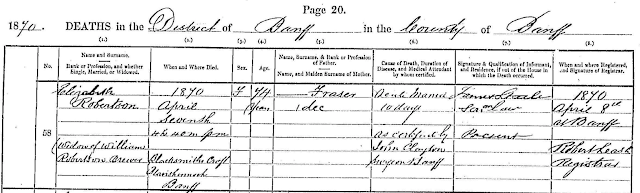 Page 20.
1870. DEATHS in the District of Banff in the County of Banff
(1.) (2.) (3.) (4.) (5.) (6.) (7.) (8.)
No. Name and Surname. Rank or Profession, and whether Single, Married, or Widowed. When and Where Died. Sex. Age. Name, Surname, & Rank or Profession of Father. Name, and Maiden Surname of Mother. Cause of Death, Duration of Disease, and Medical Attendant by whom certified. Signature & Qualification of Informant, and Residence, if out of the House in which the Death occurred. When and where Registered, and Signature of Registrar.
58
Elizabeth
Robertson
(Widow of William
Robertson
1870
April
Seventh
pm
Blacksmiths Croft
Banff
F
74
Years
Fraser
dec
10 days
as certified by
John
Surgeon Banff
James
Son in law
Present
1870
April 8th
at Banff
Robert Leask
Registrar